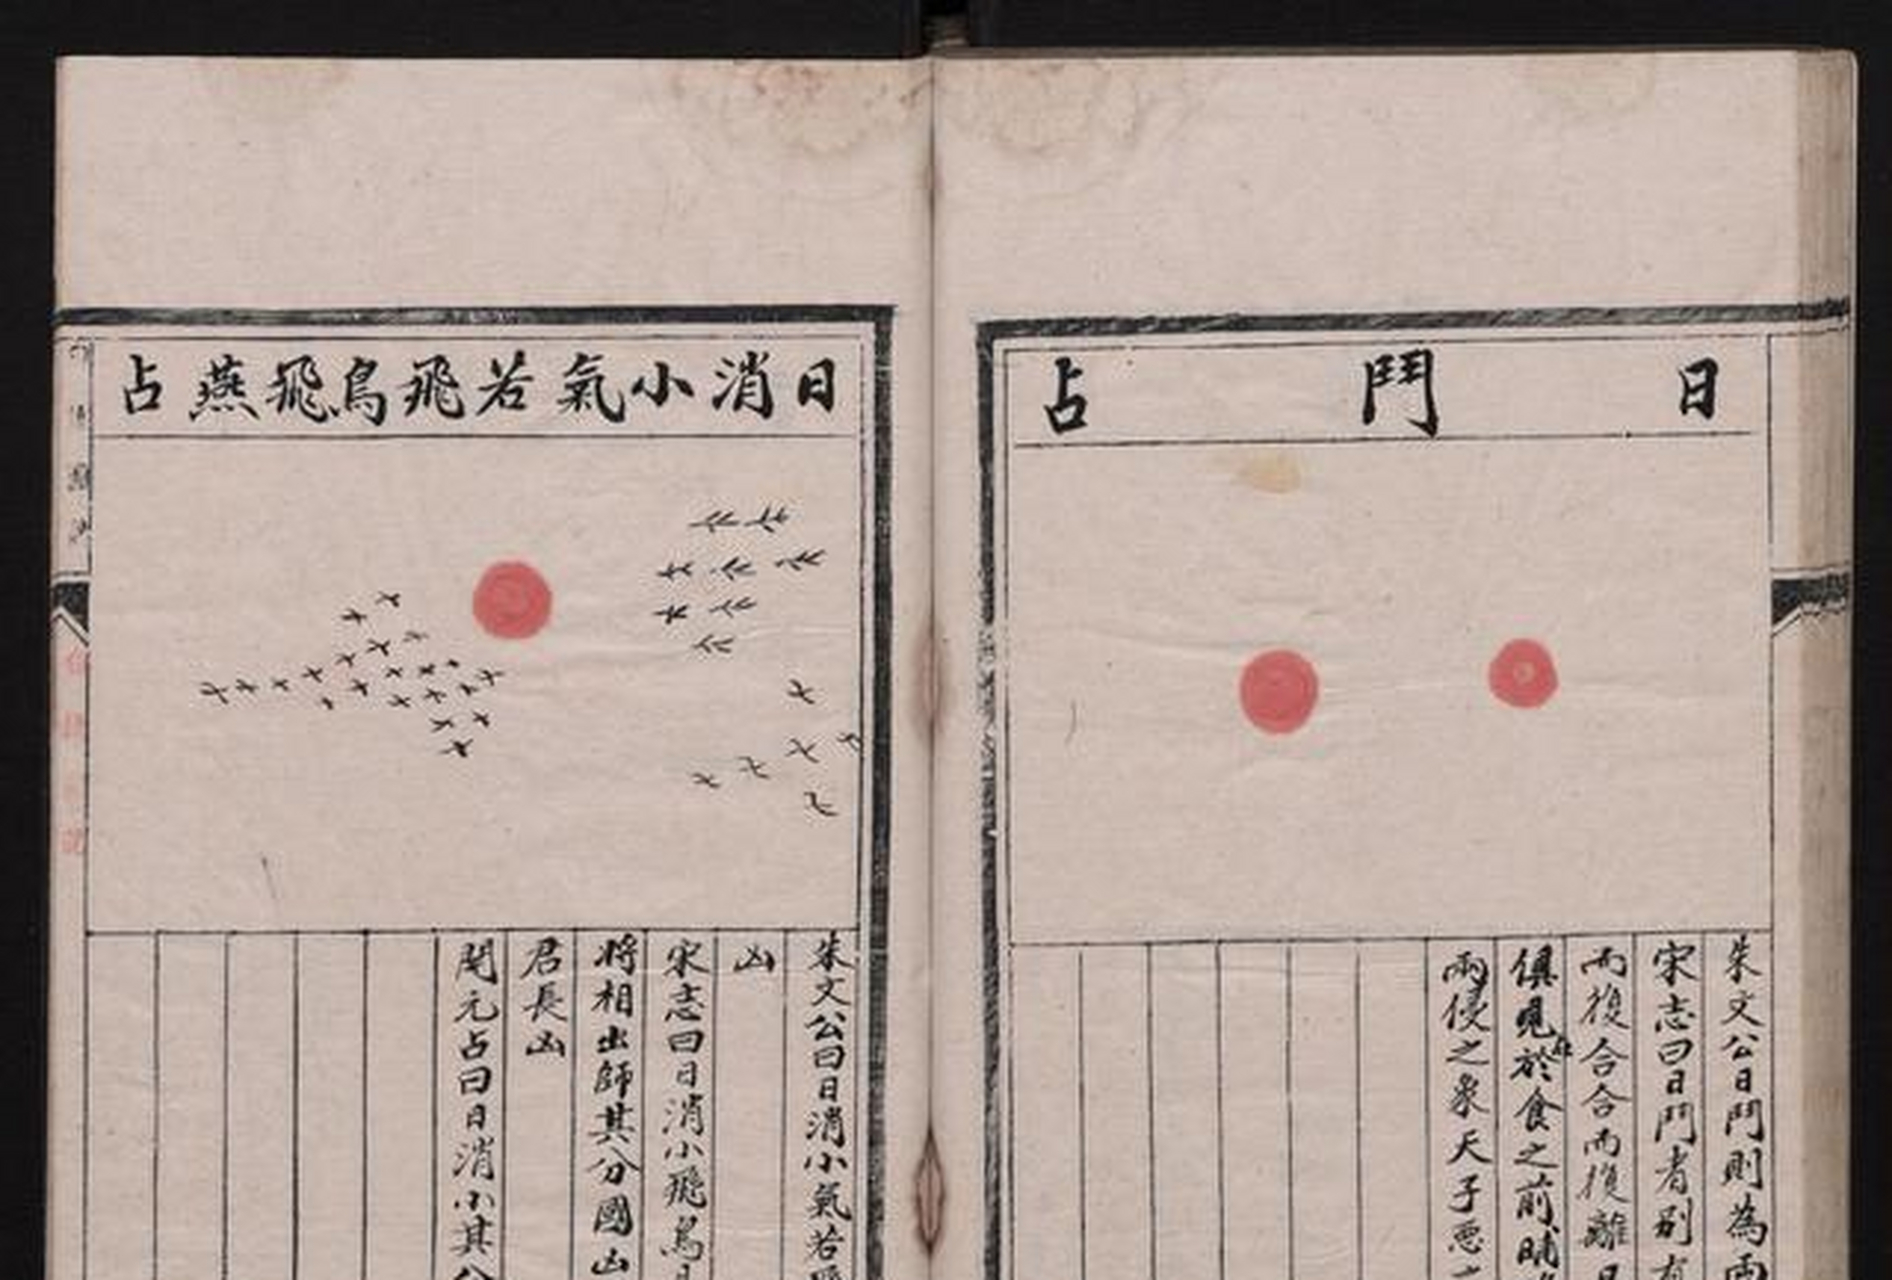 日鬥占
朱文公曰鬥則為兩
宋志曰日鬥者別有
而復合合而復離日
俱見於食之前晡
兩侵之象天子惡
日消小氣若飛鳥飛燕占
朱文公曰日消小氣若飛
凶
宋志曰日消小飛鳥日
將相出師其分國凶
君長凶
開元占曰日消小其分